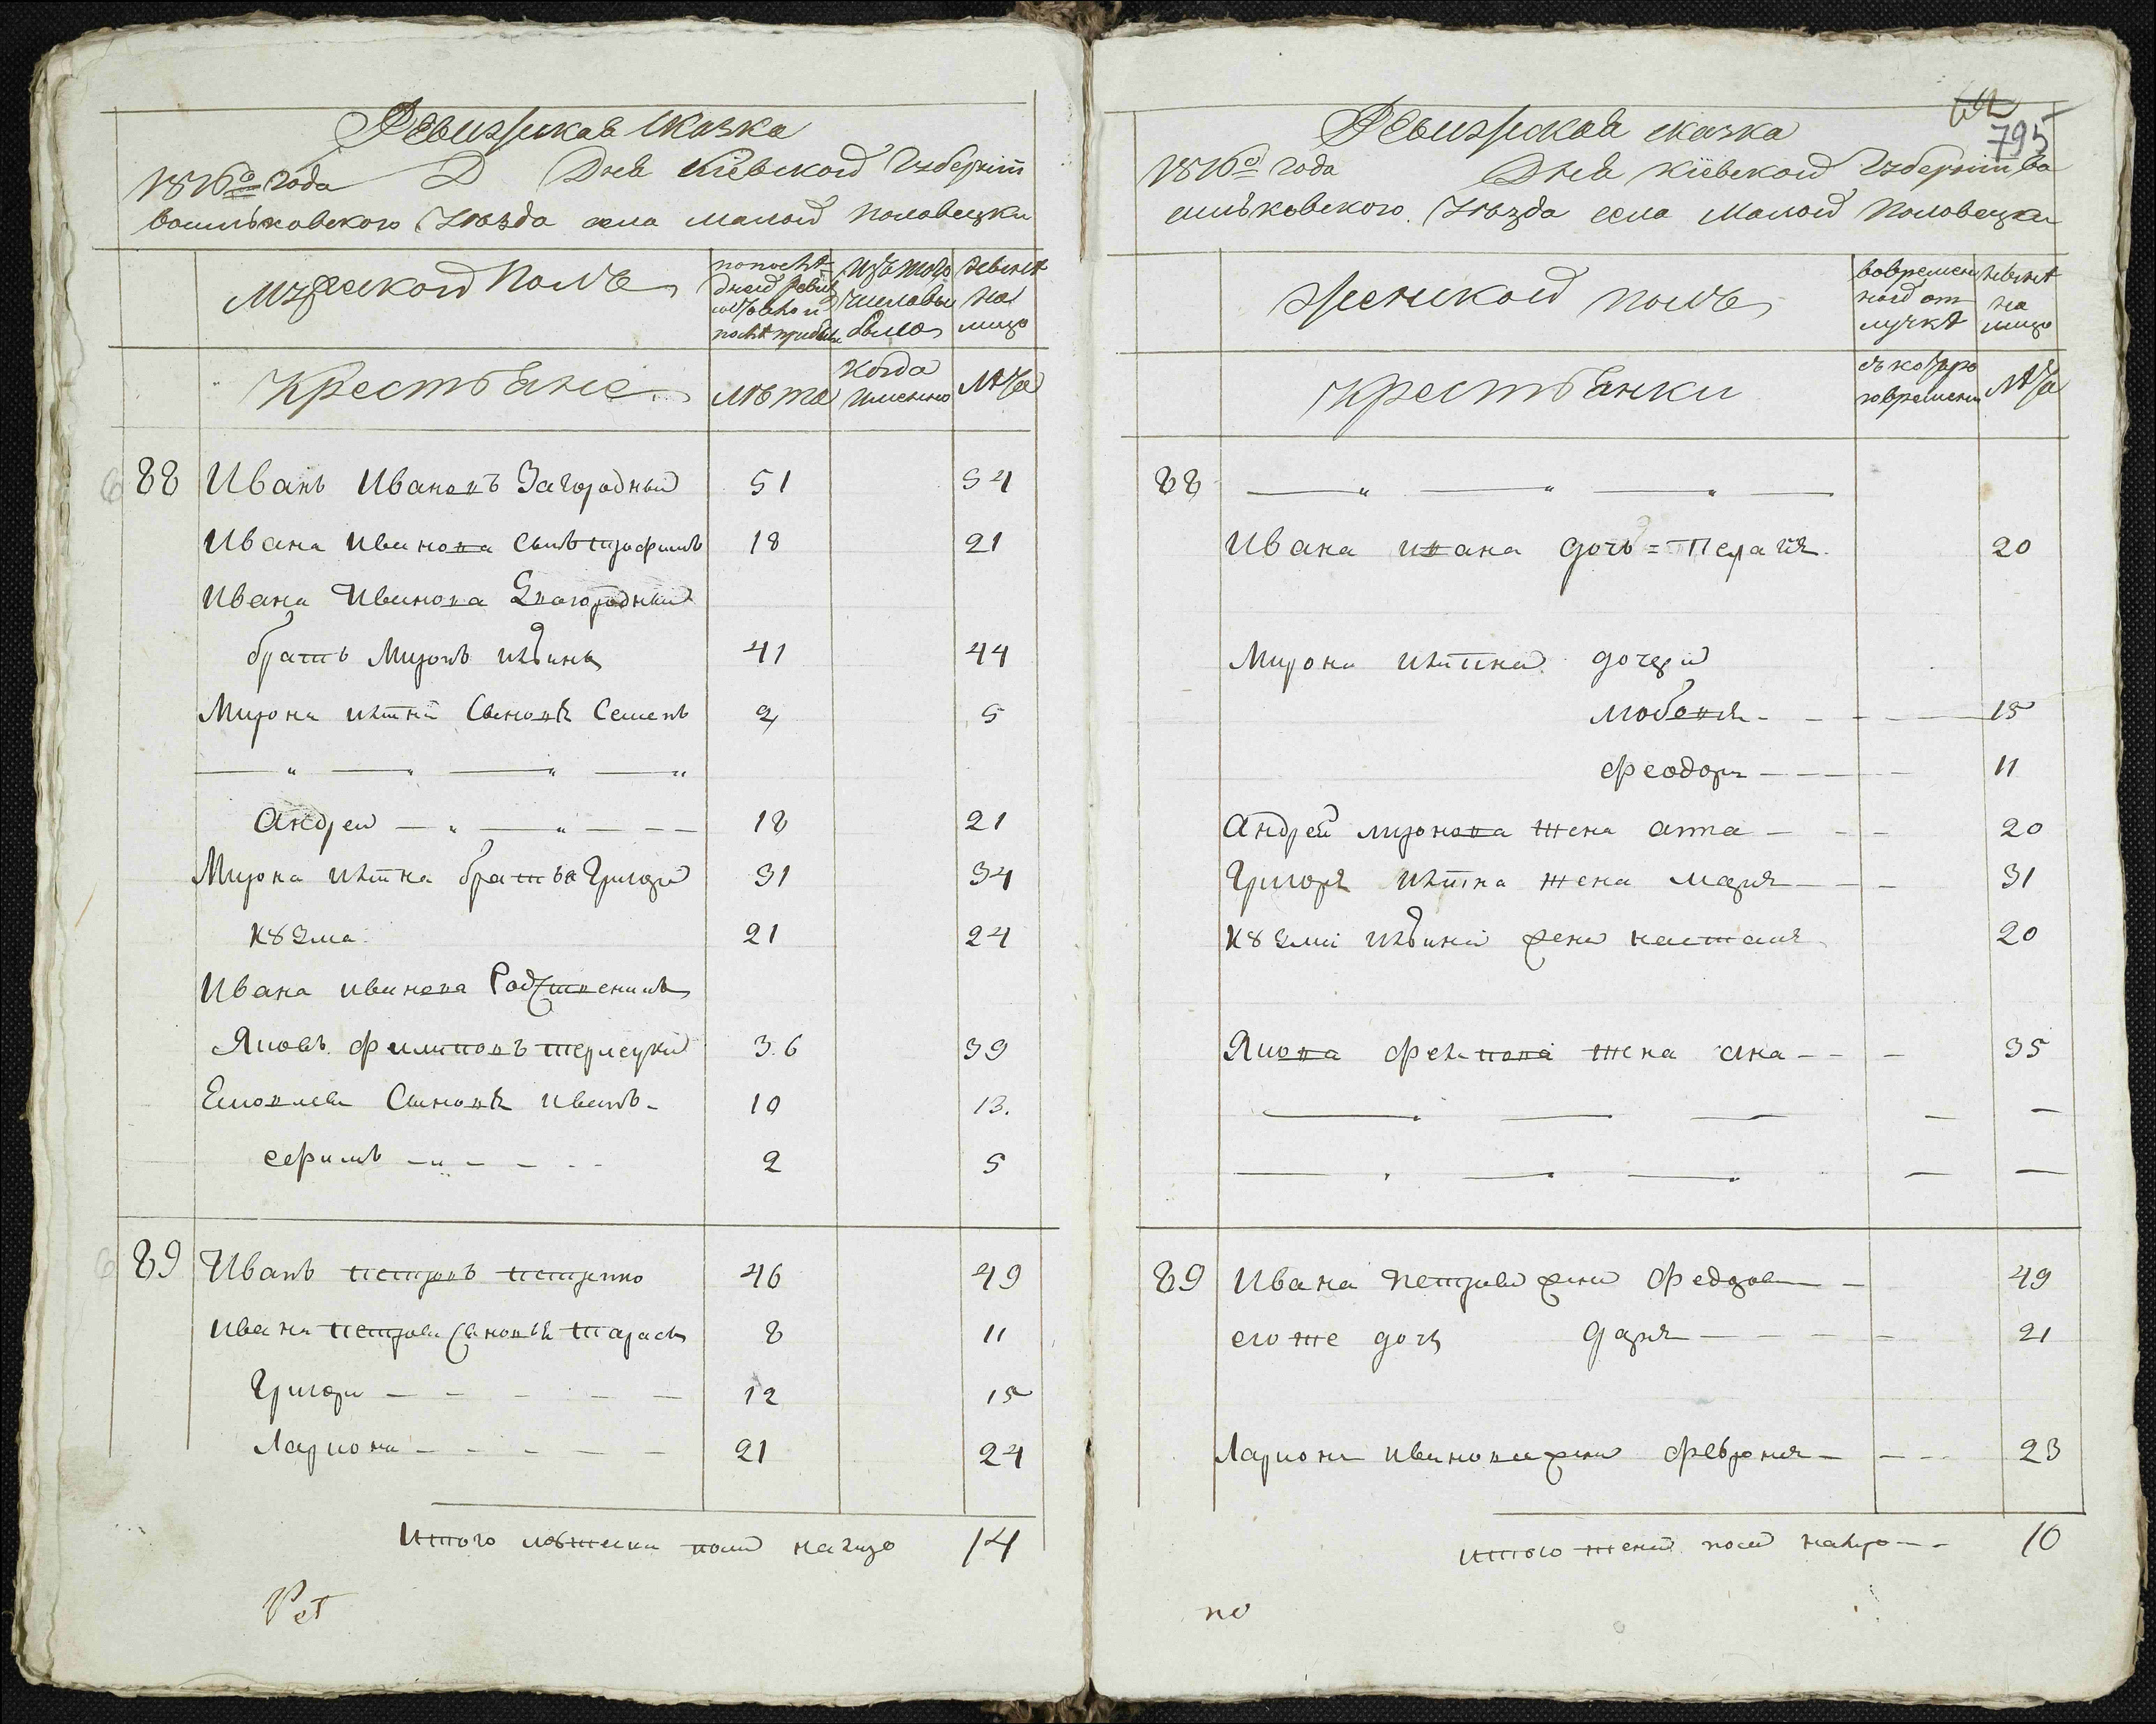 Ревизская сказка
1816го года Д Дня Киевской Губернии
васильковского Уезда села малой половецки
Мужеской Полъ
по последней ревизии состояло и после прибыло
Изъ того числа выбыло
ныне на лицо
Крестьяне
Лета
Когда именно
Лета
88 Иванъ Ивановъ Загородный 51 54
Ивана Иванова сынъ Трофимъ 18 21
Ивана Иванова Загородный
братъ Миронъ 41 44
Мирона сыновя Семенъ 2 5
Андрей 18 21
Мирона братья Григори 31 34
Кузма 21 24
Ивана иванова
Яковъ филиповъ 36 39
сыновя иванъ 10 13.
ефимъ 2 5
89 Иванъ петровъ петренко 46 49
ивана петрова сыновья тарасъ 8 11
Григори 12 15
Лариона 21 24
Итого мужеска пола налицо 14
Рет
642
795
Ревизская сказка
1816го года Дня киевской Губернии Ва
сильковского Уезда села Малой Половецки
Женской полъ
вовременной отлучке
ныне на лицо
крестьянки
съ которого времени
Лета
88
Ивана ивана дочь = Пелагия 20
Мирона дочери
любовия 15
феодора 11
Андрей миронова жена анна 20
Григоря жена марья 31
Кузми жена настасия 20
Якова жена анна 35
89 Ивана петрова жена Федора 49
его же дочь даря 21
Лариона иванова жена феврония 23
итого женска пола налицо 10
но